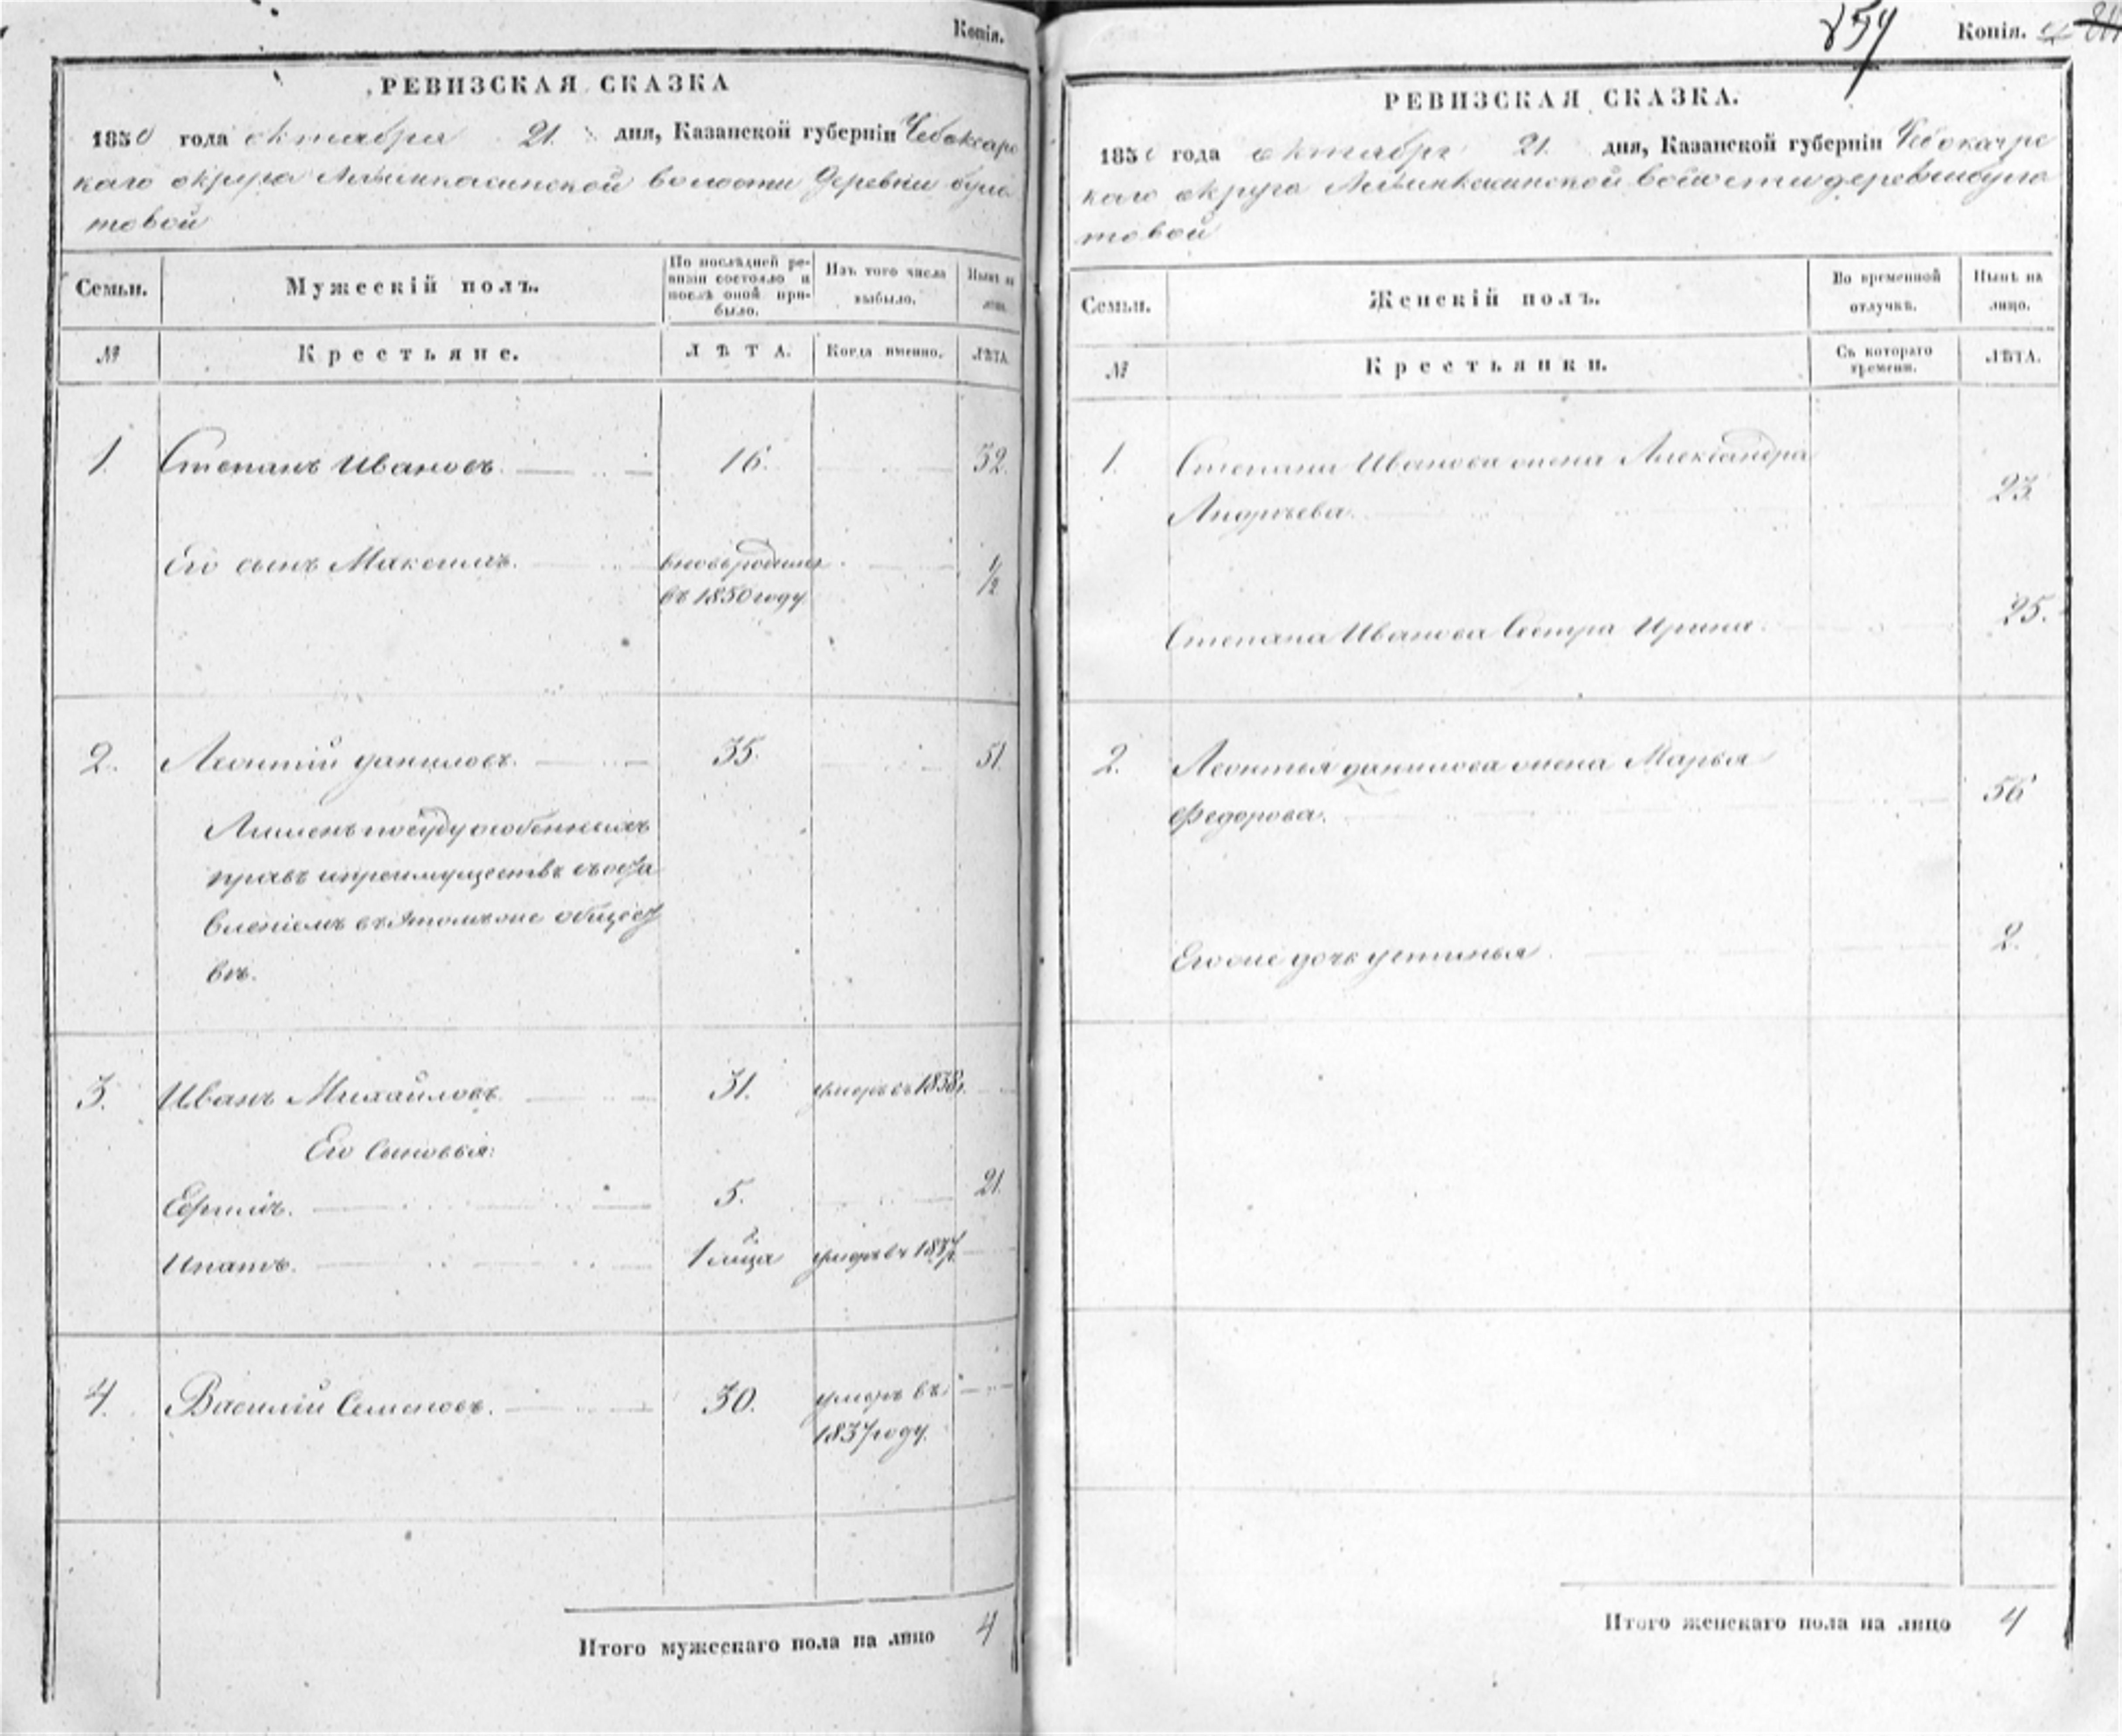 Копія.
РЕВИЗСКАЯ СКАЗКА
1850 года октября 21. дня, Казанской губерніи Чебоксарс
каго округа волости деревни Була
товой
Семьи.
Мужескій полъ.
По послѣдней ре-
визіи состояло и
послѣ оной при-
было.
Изъ того числа
выбыло.
Нынѣ на
лицо.
№
Крестьяне.
ЛѢТА.
Когда именно.
ЛѢТА.
1. Степанъ Ивановъ. 16. 32.
Его сынъ Максимъ. вновь рожденъ 1/2
въ 1850 году.
2. Леонтій Даниловъ. 35. 51.
Лишенъ по суду особенныхъ
правъ и преимуществъ съ оста
вленіемъ въ этомъ же общест
вѣ.
3. Иванъ Михайловъ. 31. умеръ въ 1838г.
Его сыновья:
Ефимъ. 5. 21.
Ипатъ. 1 м-ца умеръ въ 1837г.
4. Василій Семеновъ. 30. умеръ въ
1837 году.
Итого мужескаго пола на лицо 4
854
Копія.
РЕВИЗСКАЯ СКАЗКА.
1850 года октября 21. дня, Казанской губерніи Чебоксарс
каго округа волости деревни Була
товой
Семьи.
Женскій полъ.
Во временной
отлучкѣ.
Нынѣ на
лицо.
№
Крестьянки.
Съ котораго
времени.
ЛѢТА.
1. Степана Иванова жена Александра
Андреева. 23.
Степана Иванова сестра Ирина. 25.
2. Леонтья Данилова жена Марья
Федорова. 56
Его же дочь Устинья. 2.
Итого женскаго пола на лицо 4